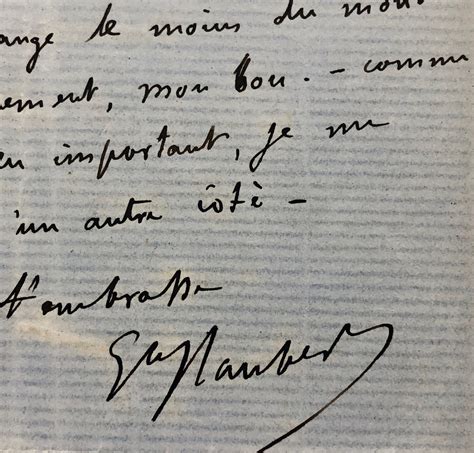 ange le moins du mon
ement, mon bon. – comme
en important, je me
'un autre côté –
t'embrasse
Gve Flaubert